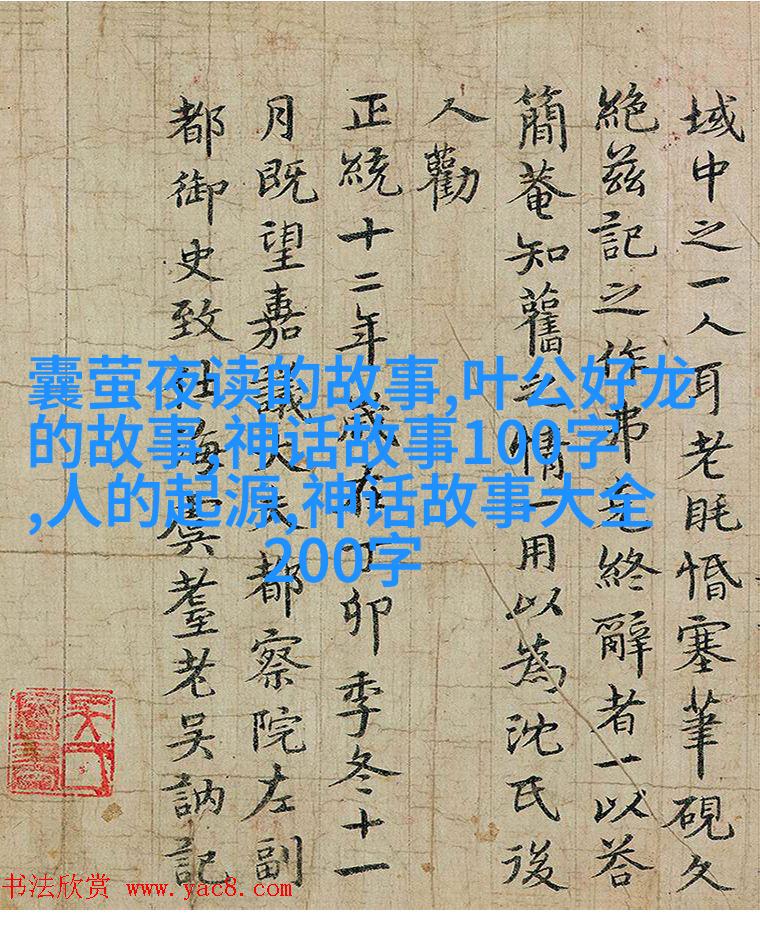 域中之一人耳老眊惛塞筆硯久
絕茲記之作弗克終辭者一以荅
簡菴知舊之情一用以為沈氏後
人勸
正統十二年歲在丁卯季冬十一
月既望嘉議大夫都察院左副
都御史致仕海虞耋老吳訥記
囊萤夜读的故事,叶公好龙
的故事,神话故事100字
,人的起源,神话故事大全
200字
书法欣赏 www.yac8.com